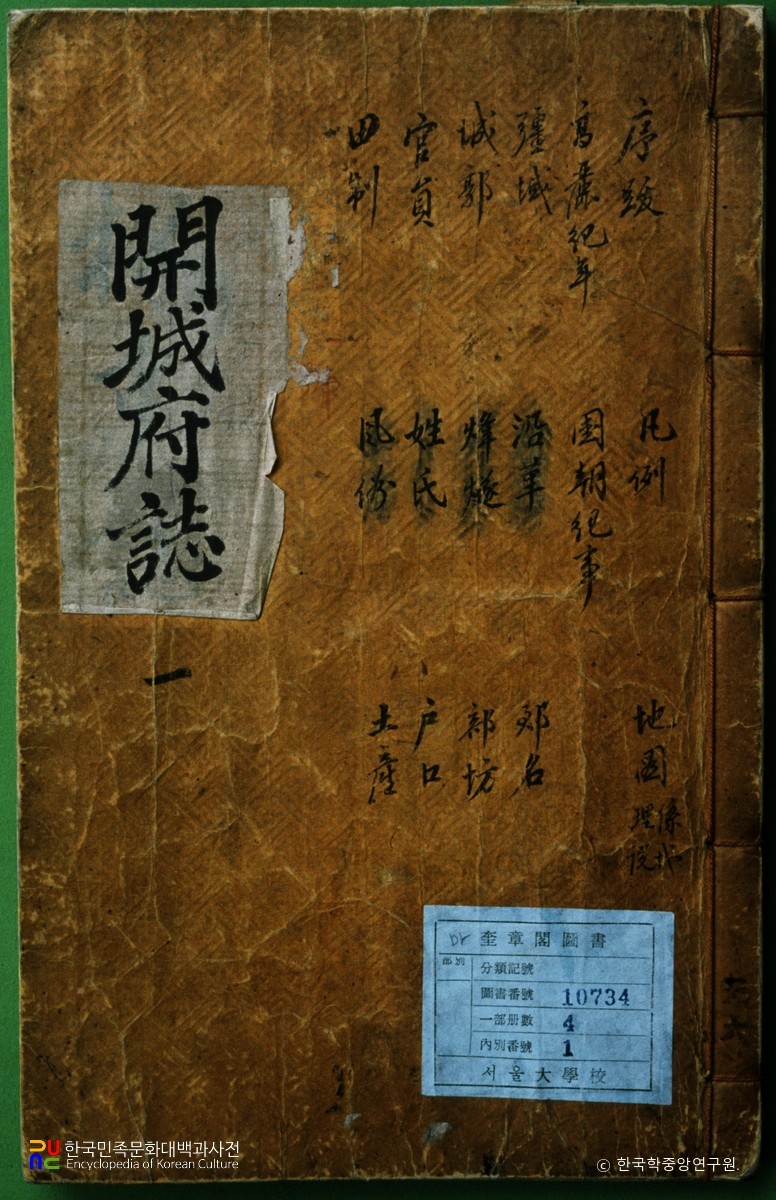 開城府誌
一
序跋 凡例 地圖 係地理說
高麗紀年 國朝紀事
疆域 沿革 郡名
城郭 烽燧 部坊
官員 姓氏 戶口
田制 風俗 土産
奎章閣圖書
部別
分類記號
圖書番號 10734
一部册數 4
內別番號 1
서울大學校
한국민족문화대백과사전
Encyclopedia of Korean Culture
ⓒ 한국학중앙연구원.